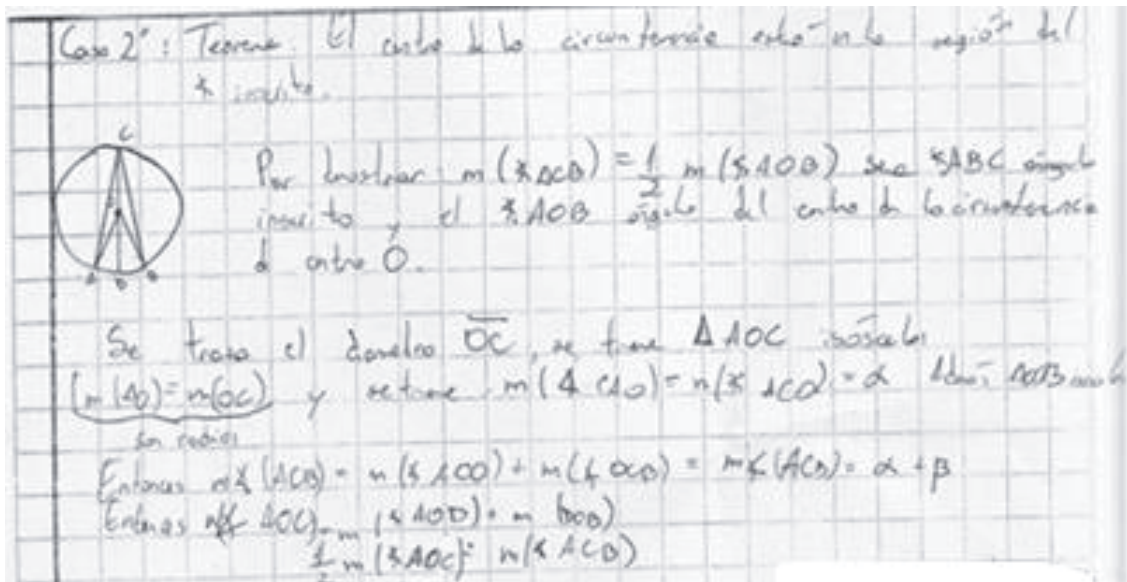 Caso 2° : Teorema El centro de la circunferencia está en la región del
∡ inscrito.
C
Por demostrar: m(∡ACB) = 1/2 m(∡AOB) sea ∡ABC ángulo
inscrito y el ∡AOB ángulo del centro de la circunferencia
d centro O.
A D B
Se traza el diametro OC, se tiene ΔAOC isósceles
(m(AO)=m(OC)) y se tiene m(∡CAO)=m(∡ACO)=α Además
son radios
Entonces m∡(ACB) = m(∡ACO) + m(∡OCB) = m∡(ACB) = α + β
Entonces m∡AOC) = m(∡AOD) + m DOB)
1/2 m(∡AOC) = m(∡ACB)